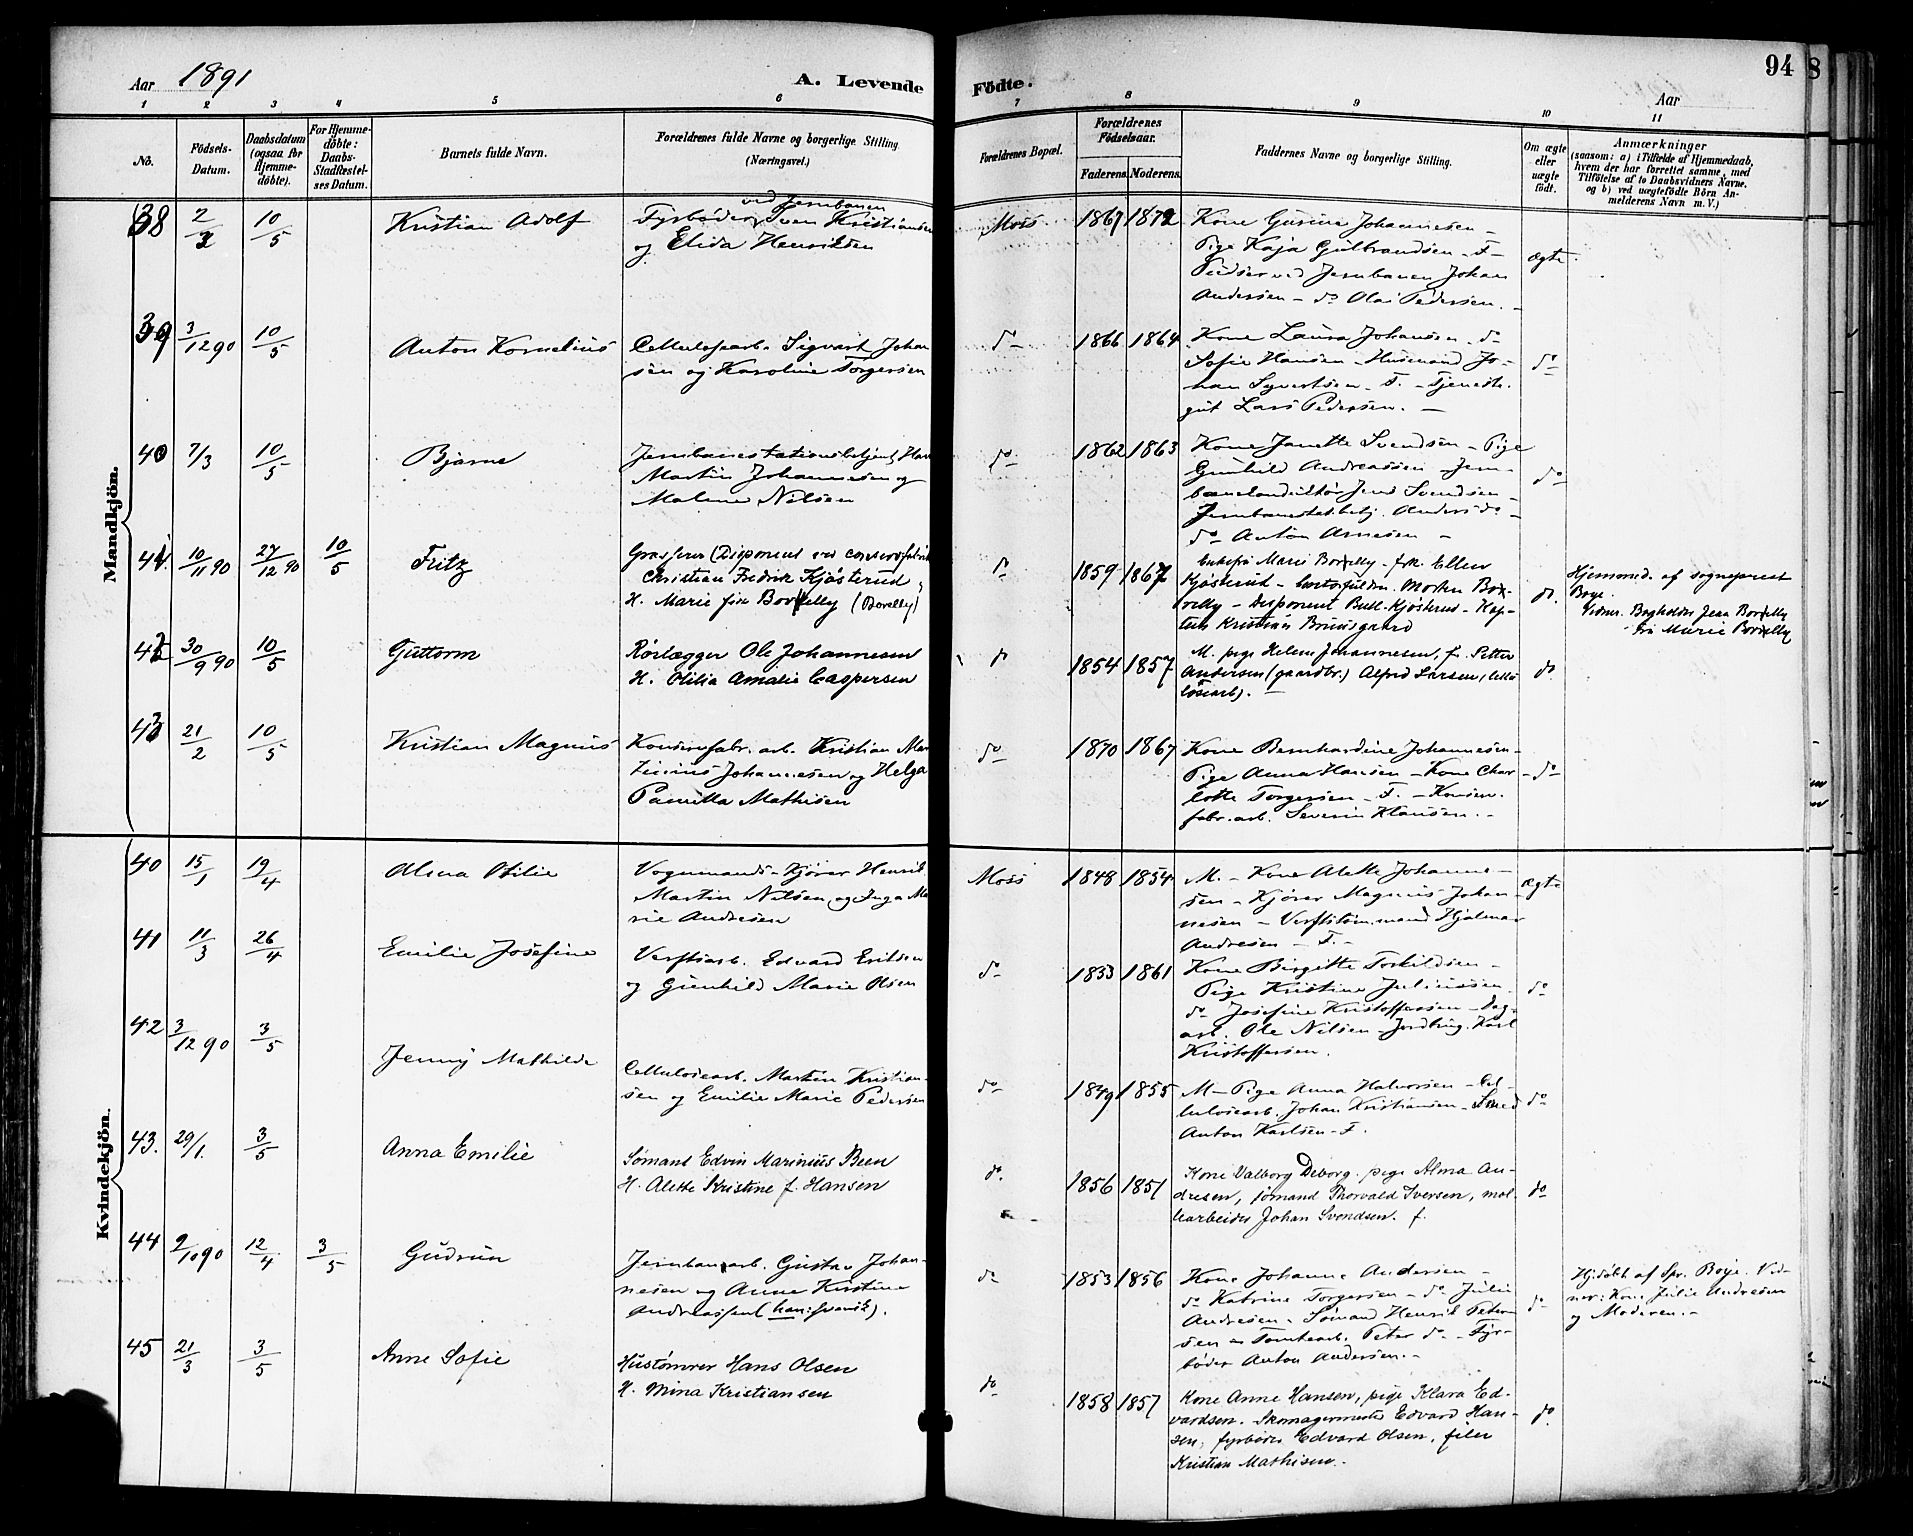 Aar 1891
A. Levende
Födte.
94
8
Aar
1 2 3 4 5 6 7 8 9 10 11
No.
Födsels-
Datum.
Daabsdatum
(ogsaa for
Hjemme-
döbte).
For Hjemme-
döbte:
Daabs-
Stadfæstel-
ses Datum.
Barnets fulde Navn.
Forældrenes fulde Navne og borgerlige Stilling
(Næringsvei.)
Forældrenes Bopæl.
Forældrenes
Födselsaar.
Faderens. Moderens.
Faddernes Navne og borgerlige Stilling.
Om ægte
eller
uægte
födt.
Anmærkninger
(saasom: a) i Tilfælde af Hjemmedaab,
hvem der har forrettet samme, med
Tilföielse af to Daabsvidners Navne.
og b) ved uægtefödte Börn An-
melderens Navn m. V.)
Mandkjön.
38 2/3 10/5 Kristian Adolf
ved Jernbanen
Fyrbøder Sven Kristiansen
og Elida Henriksen
Moss 1867 1872
Kone Gusine Johannesen -
Pige Kaja Gulbrandsen - F -
Pudser ved Jernbanen Johan
Andersen - do Olai Pedersen. -
ægte
39 3/12 90 10/5 Anton Kornelius
Cellulosearb. Sigvart Johan
sen og Karoline Torgersen
do 1866 1864
Kone Laura Johansen - do
Sofie Hansen - Husmand Jo-
han Syvertsen - F. - Tjeneste.
gut Lars Pedersen. -
do
40 7/3 10/5 Bjarne
Jernbanestationsbetjent Hans
Martin Johannesen og
Malene Nilsen
do 1862 1863
Kone Janette Svendsen - Pige
Gunhild Andreassen - Jern-
banekonduktör Jens Svendsen -
Jernbanestat.betj. Anders do -
do Anton Arnesen -
do
41. 10/11 90 27/12 90 10/5 Fritz
Grosserer (Disponent ved conservefabrik
Christian Fredrik Kjøsterud
H. Marie født Borrelly (Borelly)
do 1859 1867
Enkefrü Marie Borrelly - frk. Ellen
Kjøsterud - Morten Bor-
relly - Disponent Kjøsterud - Kap-
tein Kristian Bruusgaard
do.
Hjemmed. af sogneprest
Boye.
Vidner. Bogholder Jens Borrelly
frü Marie Borrelly
42 30/9 90 10/5 Guttorm
Rørlægger Ole Johannesen
H. Otilia Amalie Caspersen
do 1854 1857
M. pige Helene Johannesen, f. Petter
Andersen (gaardbr.) Alfred Larsen, (cellu
losearb). -
do.
43 21/2 10/5 Kristian Magnus
Konservefabr. arb. Kristian Mar
tinius Johannesen og Helga
Pauella Mathisen
do 1870 1867
Kone Bernhardine Johannesen -
Pige Anna Hansen - Kone Char-
lotte Torgersen - F. - Konserv.
fabr. arb. Severin Klausen. -
do
Kvindekjön.
40 15/1 19/4 Alma Otilie
Vognmands-Kjører Henrik
Martin Nilsen og Inga Ma
rie Andresen
Moss 1848 1854
M. - Kone Alette Johanne-
sen - Kjører Magnus Johan-
nesen - Verftstøm.mand Hjalmar
Andresen - F. -
ægte
41 11/3 26/4 Emilie Josefine
Verftsarb. Edvard Eriksen
og Gunhild Marie Olsen
do 1833 1861
Kone Birgitte Torkildsen -
Pige Kristine Juliussen.
do Josefine Kristoffersen - Dag-
arb. Ole Nilsen - Jordbrug. Karl
Kristoffersen.
do
42 3/12 90 3/5 Jenny Mathilde
Cellulosearb. Martin Kristian-
sen og Emilie Marie Pedersen
do 1849 1855
M - Pige Anna Halvorsen - Cel-
lulosearb. Johan Kristiansen - Smed
Anton Karlsen - F.
do
43. 29/1. 3/5 Anna Emilie
Sømand Edvin Marinius Been
H. Alette Kristine f. Hansen
do. 1856 1851
Kone Valborg Deborg. pige Alma An-
dresen, sømand Thorvald Iversen, møl-
learbeider Johan Svendsen. f.
do
44 9/10 90 12/4 3/5 Gudrun
Jernbanearb. Gustav Johan-
nesen og Anne Kirstine
Andreassen (han: svensk).
do 1853 1856
Kone Johanne Andersen -
do Katrine Torgersen - do Julie
Andresen - Sømand Henrik Peter
sen - Tomtearb. Peter do - Fyr-
bøder Anton Andersen. -
do
Hj.døbt af Spr. Boye. Vid-
ner: Kone Julie Andresen
og Moderen. -
45 21/3 3/5 Anne Sofie
Hustømrer Hans Olsen
H. Mina Kristiansen
do 1858 1857
Kone Anne Hansen, pige Klara Ed-
vardsen. Skomagermester Edvard Han-
sen, fyrbøder Edvard Olsen, filer
Kristian Mathisen. -
do.